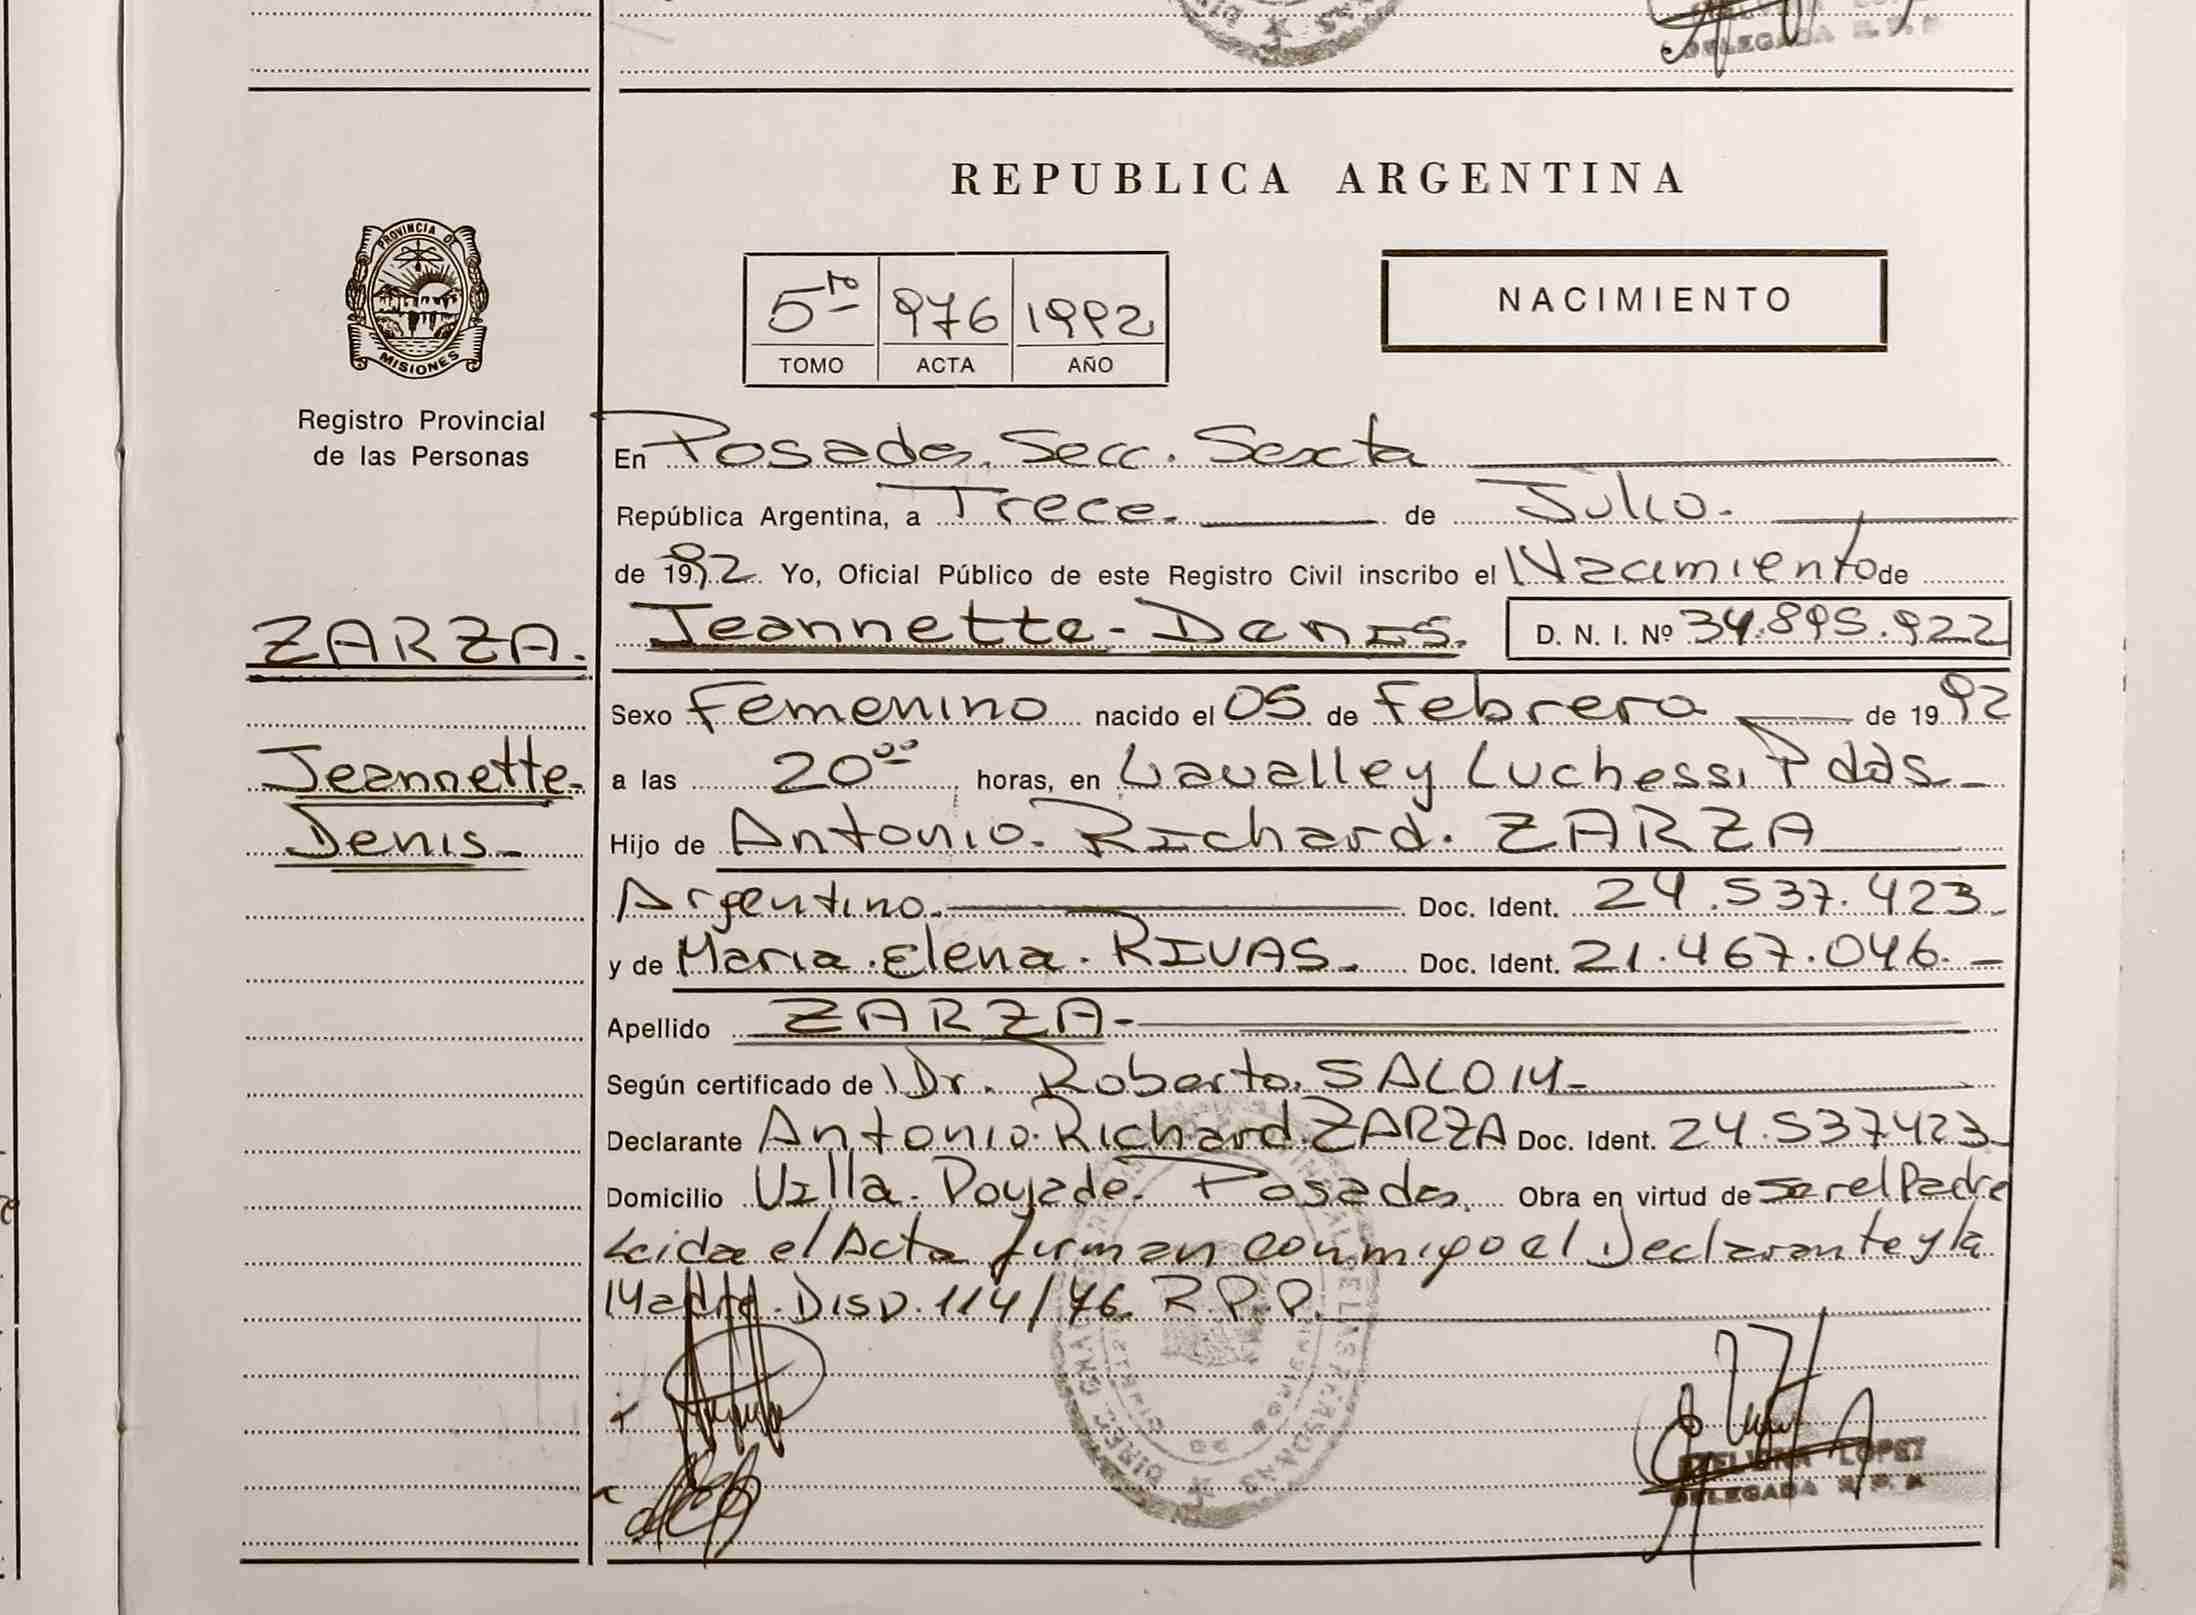 DELEGADA R. P. P
REPUBLICA ARGENTINA
PROVINCIA DE
MISIONES
Registro Provincial
de las Personas
5to 976 1992
TOMO ACTA AÑO
NACIMIENTO
En Posadas. Secc. Sexta
República Argentina, a Trece. de Julio.
de 1992. Yo, Oficial Público de este Registro Civil inscribo el Nacimiento de
ZARZA.
Jeannette-
Denis-
Jeannette-Denis. D. N. I. Nº 34.895.922
Sexo Femenino nacido el 05 de Febrero de 1992
a las 20:00 horas, en Lavalle y Luchessi Pdas-
Hijo de Antonio. Richard. ZARZA
Argentino. Doc. Ident. 24.537.423-
y de Maria. Elena. RIVAS. Doc. Ident. 21.467.046.-
Apellido ZARZA-
Según certificado de Dr. Roberto. SALOM-
Declarante Antonio. Richard. ZARZA Doc. Ident. 24.537423-
Domicilio Villa. Poujade. Posadas. Obra en virtud de ser el Padre
Leida el Acta firman conmigo el Declarante y la
Madre. Disp. 114/76. R.P.P.
LOPEZ
DELEGADA R. P. P